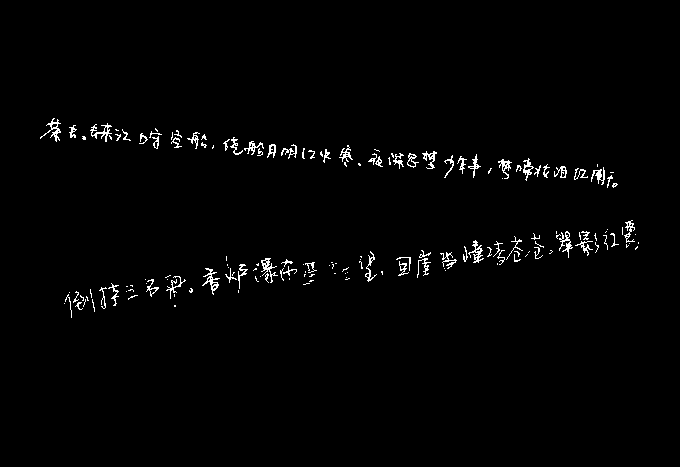 茶去。去来江口守空船,绕船月明江水寒。夜深忽梦少年事,梦啼妆泪红阑干。
倒挂三石梁。香炉瀑布遥相望,回崖沓嶂凌苍苍。翠影红霞